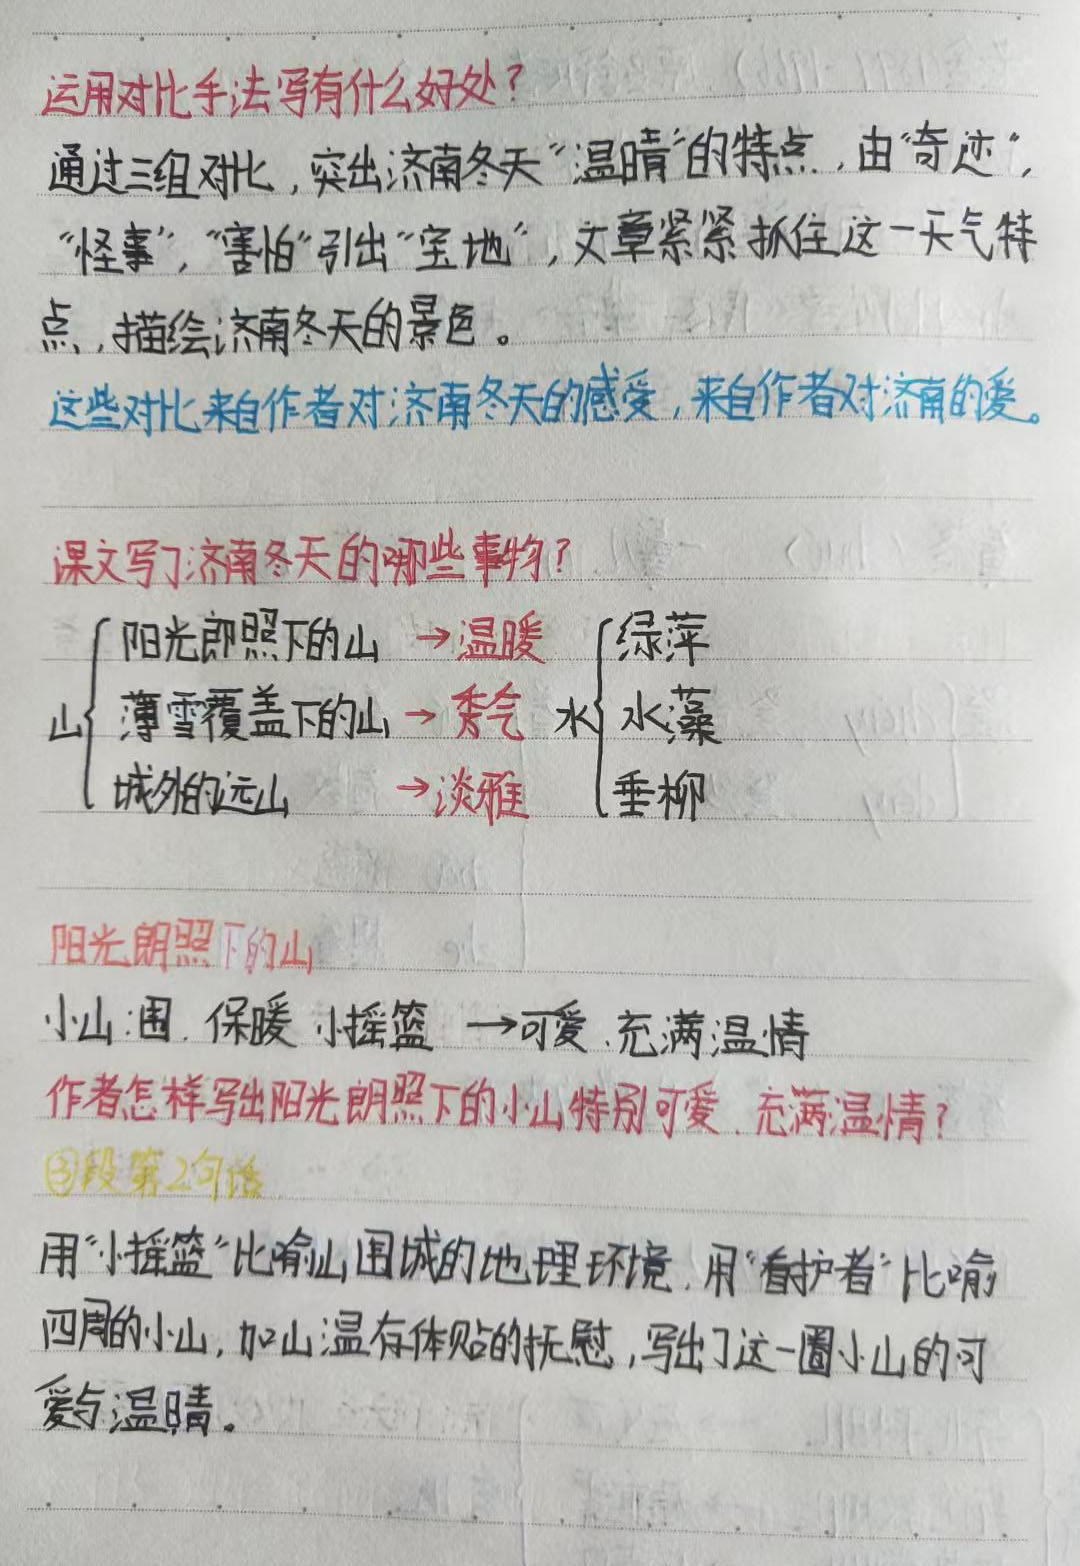 运用对比手法写有什么好处？
通过三组对比，突出济南冬天“温晴”的特点，由“奇迹”，
“怪事”，“害怕”引出“宝地”，文章紧紧抓住这一天气特
点，描绘济南冬天的景色。
这些对比来自作者对济南冬天的感受，来自作者对济南的爱。
课文写了济南冬天的哪些事物？
阳光郎照下的山 →温暖 绿萍
山 薄雪覆盖下的山→ 秀气 水 水藻
城外的远山 →淡雅 垂柳
阳光朗照下的山
小山：围、保暖 小摇篮 →可爱、充满温情
作者怎样写出阳光朗照下的小山特别可爱、充满温情？
③段第2句话
用“小摇篮”比喻山围城的地理环境，用“看护者”比喻
四周的小山，加山温存体贴的抚慰，写出了这一圈小山的可
爱与温晴。